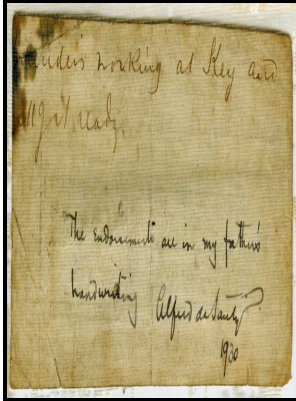 working at Key and
ready.
The endorsements are in my father's
handwriting Alfred de Sauty
1930